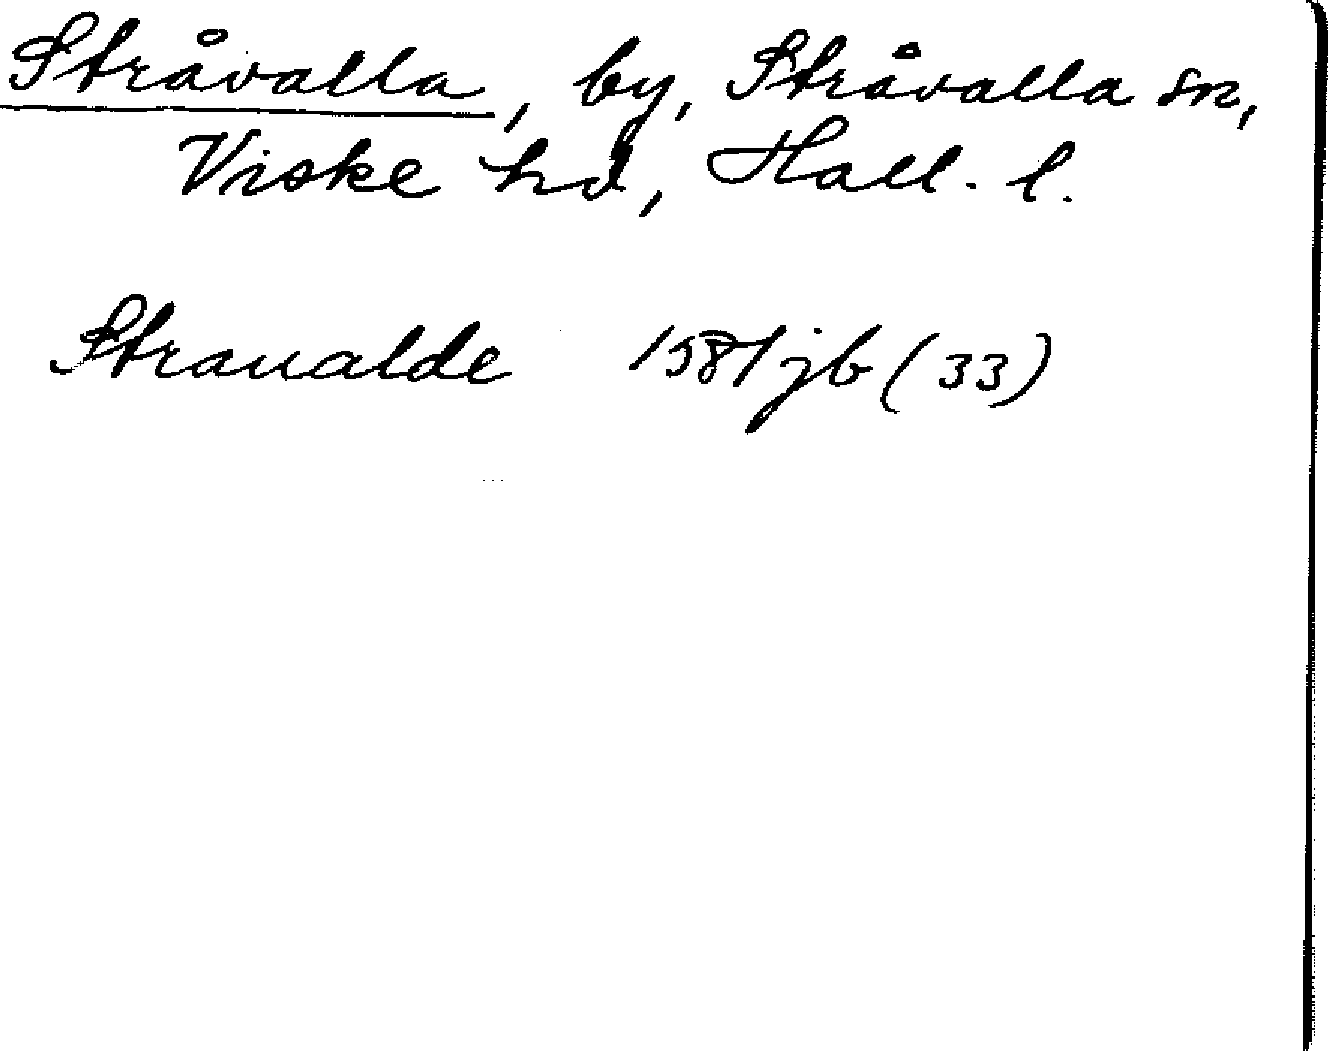 Stråvalla, by, Stråvalla sn,
Viske hd, Hall. l.
Straualde 1581 jb (33)